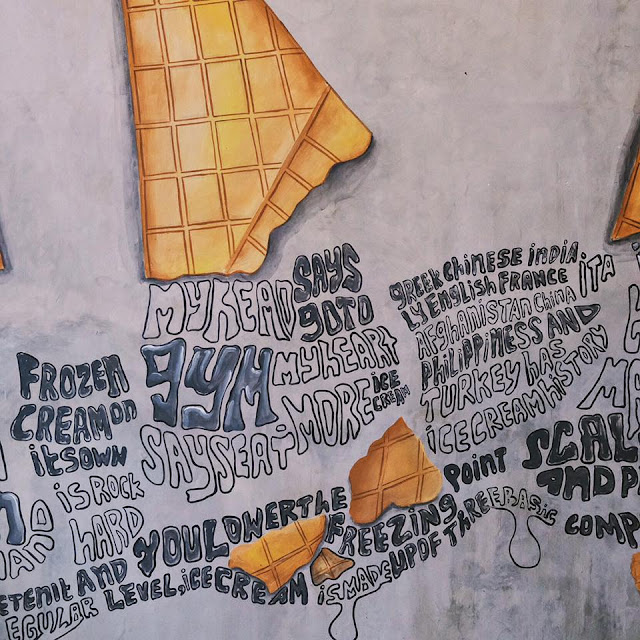 MY HEAD SAYS
GOTO
GYM MY HEART
SAYS EAT MORE ICE
CREAM
GREEK CHINESE INDIA ITA
LY ENGLISH FRANCE
AFGHANISTAN CHINA
PHILIPPINESS AND
TURKEY HAS
ICE CREAM HISTORY
FROZEN
CREAM ON
ITS OWN
IS ROCK
HARD
YOU LOWER THE
FREEZING POINT
AND LEVEL, ICE CREAM
IS MADE UP OF THREE BASIC
COMP
SCAL
AND